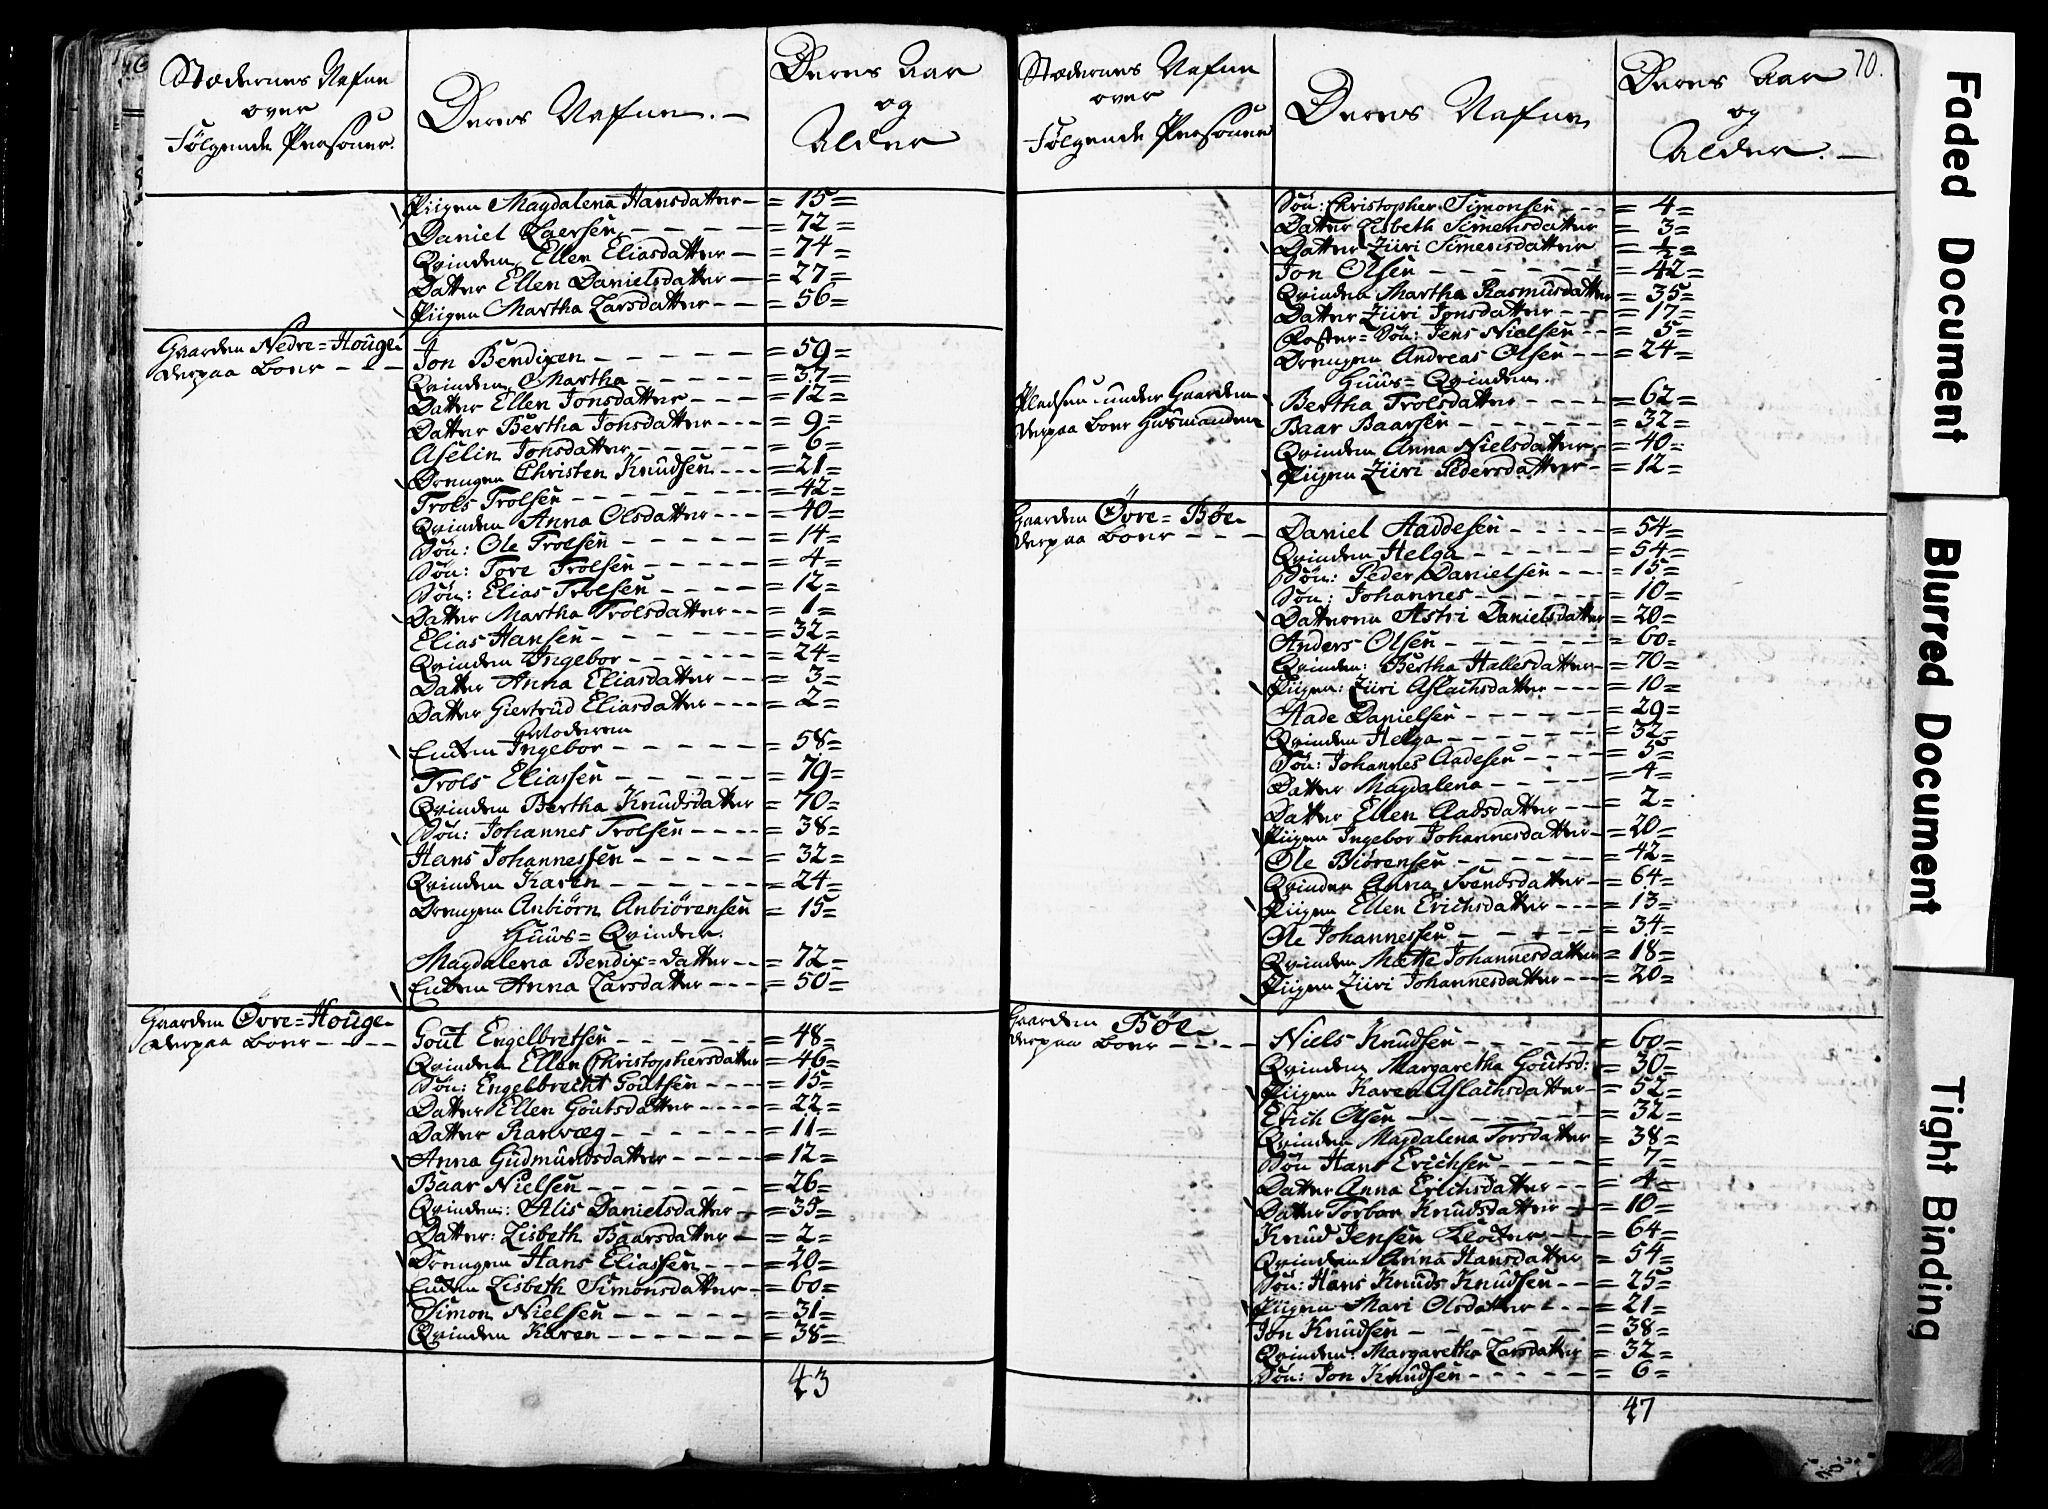 Stædernes Nafne
over
Følgende Personer.
Deres Nafne. —
Deres Aar
og
Alder
Piigen Magdalena Hansdatter — = 15 =
Daniel Laersen — = 72 =
Qvinden Ellen Eliasdatter — = 74 =
Datter Ellen Danielsdatter — = 27 =
Piigen Martha Larsdatter — = 56 =
Gaarden Nedre=Houge
derpaa boer
Jon Bendixen — = 59 =
Qvinden Martha — = 37 =
Datter Ellen Jonsdatter — = 12 =
Datter Bertha Jonsdatter — = 9 =
Aselin Jonsdatter — = 6 =
Drengen Christen Knudsen — = 21 =
Trols Trolsen — = 42 =
Qvinden Anna Olsdatter — = 40 =
Søn: Ole Trolsen — = 14 =
Søn: Tore Trolsen — = 4 =
Søn: Elias Trolsen — = 12 =
Datter Martha Trolsdatter — = 1 =
Elias Hansen — = 32 =
Qvinden Ingebor — = 24 =
Datter Anna Eliasdatter — = 3 =
Datter Giertrud Eliasdatter — = 2 =
Moderen
Enken Ingebor — = 58 =
Trols Eliassen — = 79 =
Qvinden Bertha Knudsdatter = 70 =
Søn: Johannes Trolsen — = 38 =
Hans Johannessen — = 32 =
Qvinden Karen — = 24 =
Drengen Anbiørn Anbiørensen = 15 =
Huus=Qvinder.
Magdalena Bendix=datter — = 72 =
Enken Anna Larsdatter — = 50 =
Gaarden Øvre=Houge
derpaa boer
Gout Engelbretsen — = 48 =
Qvinden Ellen Christophersdatter = 46 =
Søn: Engelbrecht Goutsen — = 15 =
Datter Ellen Goutsdatter — = 22 =
Datter Ranvæg — = 11 =
Anna Gudmundsdatter — = 12 =
Baar Nielsen — = 26 =
Qvinden: Alis Danielsdatter — = 35 =
Datter: Lisbeth Baarsdatter — = 2 =
Drengen Hans Eliassen — = 20 =
Enken Lisbeth Simonsdatter — = 60 =
Simon Nielsen — = 31 =
Qvinden Karen — = 38 =
43
Stædernes Nafne
over
Følgende Personer
Deres Nafne
Deres Aar
og
Alder. —
70.
Søn: Christopher Simonsen — = 4 =
Datter Lisbeth Simensdatter = 3 =
Datter Ziiri Simensdatter = ½ =
Jon Olsen — = 42 =
Qvinden Martha Rasmusdatter = 35 =
Datter Ziiri Jonsdatter — = 17 =
Foster=Søn: Jens Nielsen — = 5 =
Drengen Andreas Olsen — = 24 =
Huus=Qvinden.
Bertha Trolsdatter — = 62 =
Pladsen under Gaarden
derpaa boer Husmanden
Baar Baarsen — = 32 =
Qvinden Anna Nielsdatter = 40 =
Piigen Ziiri Pedersdatter — = 12 =
Gaarden Øvre=Bøe
derpaa boer
Daniel Haddesen — = 54 =
Qvinden Helga — = 54 =
Søn: Peder Danielsen — = 15 =
Søn: Johannes — = 10 =
Datteren Astri Danielsdatter = 20 =
Anders Olsen — = 60 =
Qvinden: Bertha Hallesdatter — = 70 =
Piigen: Ziiri Aslachsdatter — = 10 =
Hade Danielsen — = 29 =
Qvinden Helga — = 32 =
Søn: Johannes Aadesen — = 5 =
Datter Magdalena — = 4 =
Datter Ellen Aadsdatter — = 2 =
Piigen Ingebor Johannesdatter — = 20 =
Ole Biørensen — = 42 =
Qvinden Anna Svendsdatter — = 64 =
Piigen Ellen Erichsdatter — = 13 =
Ole Johannessen — = 34 =
Qvinden Mætte Johannesdatter = 18 =
Piigen Ziiri Johannesdatter — = 20 =
Gaarden Bøe
derpaa boer
Niels Knudsen — = 60 =
Qvinden Margaretha Goutsd: = 30 =
Piigen Karen Aslachsdatter — = 52 =
Erich Olsen — = 32 =
Qvinden Magdalena Torsdatter = 38 =
Søn Hans Erichsen — = 7 =
Datter Anna Erichsdatter — = 4 =
Datter Torbor Knudsdatter — = 10 =
Knud Jensen — = 64 =
Qvinden Anna Hansdatter = 54 =
Søn: Hans Knuds Knudsen — = 25 =
Piigen Mari Olsdatter — = 21 =
Jon Knudsen — = 38 =
Qvinden: Margaretha Larsdatter = 32 =
Søn: Jon Knudsen — = 6 =
47
Faded Document
Blurred Document
Tight Binding